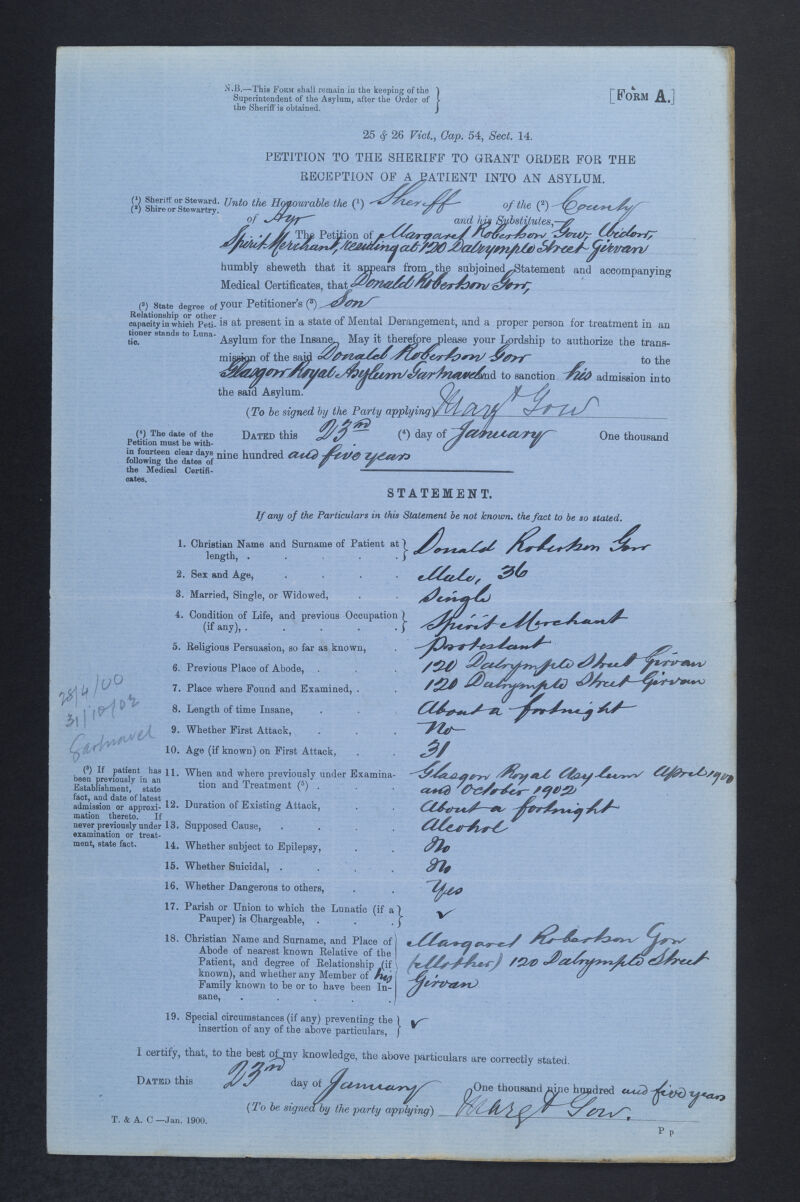 N.B.—This Form shall remain in the keeping of the
Superintendent of the Asylum, after the Order of
the Sheriff is obtained.
[Form A.]
25 & 26 Vict., Cap. 54, Sect. 14.
PETITION TO THE SHERIFF TO GRANT ORDER FOR THE
RECEPTION OF A PATIENT INTO AN ASYLUM.
(1) Sheriff or Steward.
(2) Shire or Stewartry.
Unto the Honourable the (1) Sheriff of the (2) County
of Ayr and his Substitutes,—
The Petition of Margaret Robertson Gow, Widow,
Spirit Merchant, residing at 120 Dalrymple Street Girvan
humbly sheweth that it appears from the subjoined Statement and accompanying
Medical Certificates, that Donald Robertson Gow,
(3) State degree of
Relationship or other
capacity in which Peti-
tioner stands to Luna-
tic.
your Petitioner's (3) Son
is at present in a state of Mental Derangement, and a proper person for treatment in an
Asylum for the Insane. May it therefore please your Lordship to authorize the trans-
mission of the said Donald Robertson Gow to the
Glasgow Royal Asylum Gartnavel and to sanction his admission into
the said Asylum.
(To be signed by the Party applying) Margt Gow
(4) The date of the
Petition must be with-
in fourteen clear days
following the dates of
the Medical Certifi-
cates.
Dated this 23rd (4) day of January One thousand
nine hundred and five years
STATEMENT.
If any of the Particulars in this Statement be not known, the fact to be so stated.
1. Christian Name and Surname of Patient at
length, . . . . . Donald Robertson Gow
2. Sex and Age, . . . . Male, 36
3. Married, Single, or Widowed, . . Single
4. Condition of Life, and previous Occupation
(if any), . . . . . . Spirit Merchant
5. Religious Persuasion, so far as known, . Protestant
6. Previous Place of Abode, . . . 120 Dalrymple Street Girvan
7. Place where Found and Examined, . . 120 Dalrymple Street Girvan
8. Length of time Insane, . . . About a fortnight
9. Whether First Attack, . . . No
10. Age (if known) on First Attack, . . 31
28/4/00
31/10/02
Gartnavel
(5) If patient has
been previously in an
Establishment, state
fact, and date of latest
admission or approxi-
mation thereto. If
never previously under
examination or treat-
ment, state fact.
11. When and where previously under Examina-
tion and Treatment (5) . . . Glasgow Royal Asylum April 1900
and October 1902
12. Duration of Existing Attack, . . About a fortnight
13. Supposed Cause, . . . . Alcohol
14. Whether subject to Epilepsy, . . No
15. Whether Suicidal, . . . . No
16. Whether Dangerous to others, . . Yes
17. Parish or Union to which the Lunatic (if a
Pauper) is Chargeable, . . . ✓
18. Christian Name and Surname, and Place of
Abode of nearest known Relative of the
Patient, and degree of Relationship (if
known), and whether any Member of his
Family known to be or to have been In-
sane, . . . . . .
Margaret Robertson Gow
(Mother) 120 Dalrymple Street
Girvan
19. Special circumstances (if any) preventing the
insertion of any of the above particulars, ✓
I certify, that, to the best of my knowledge, the above particulars are correctly stated.
Dated this 23rd day of January One thousand nine hundred and five years
(To be signed by the party applying) Margt Gow.
T. & A. C—Jan. 1900.
P p